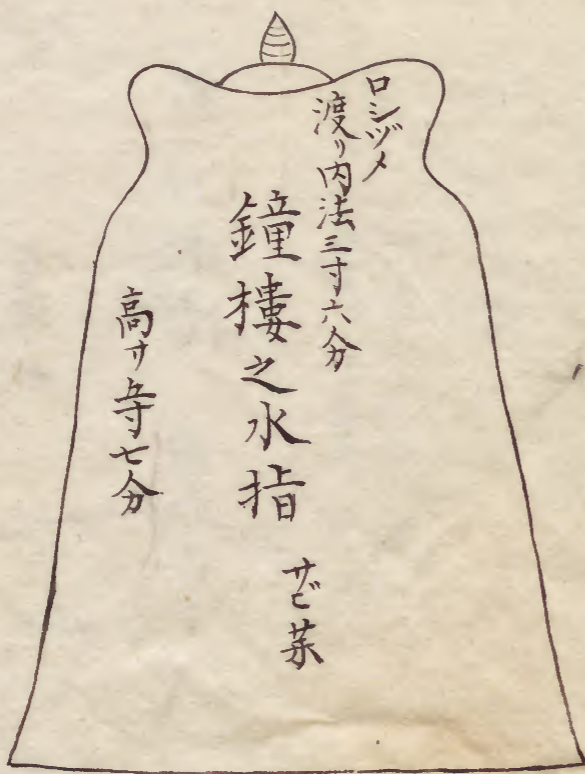 口シヅメ
渡リ内法三寸六分
鐘樓之水指
サビ
高サ五寸七分